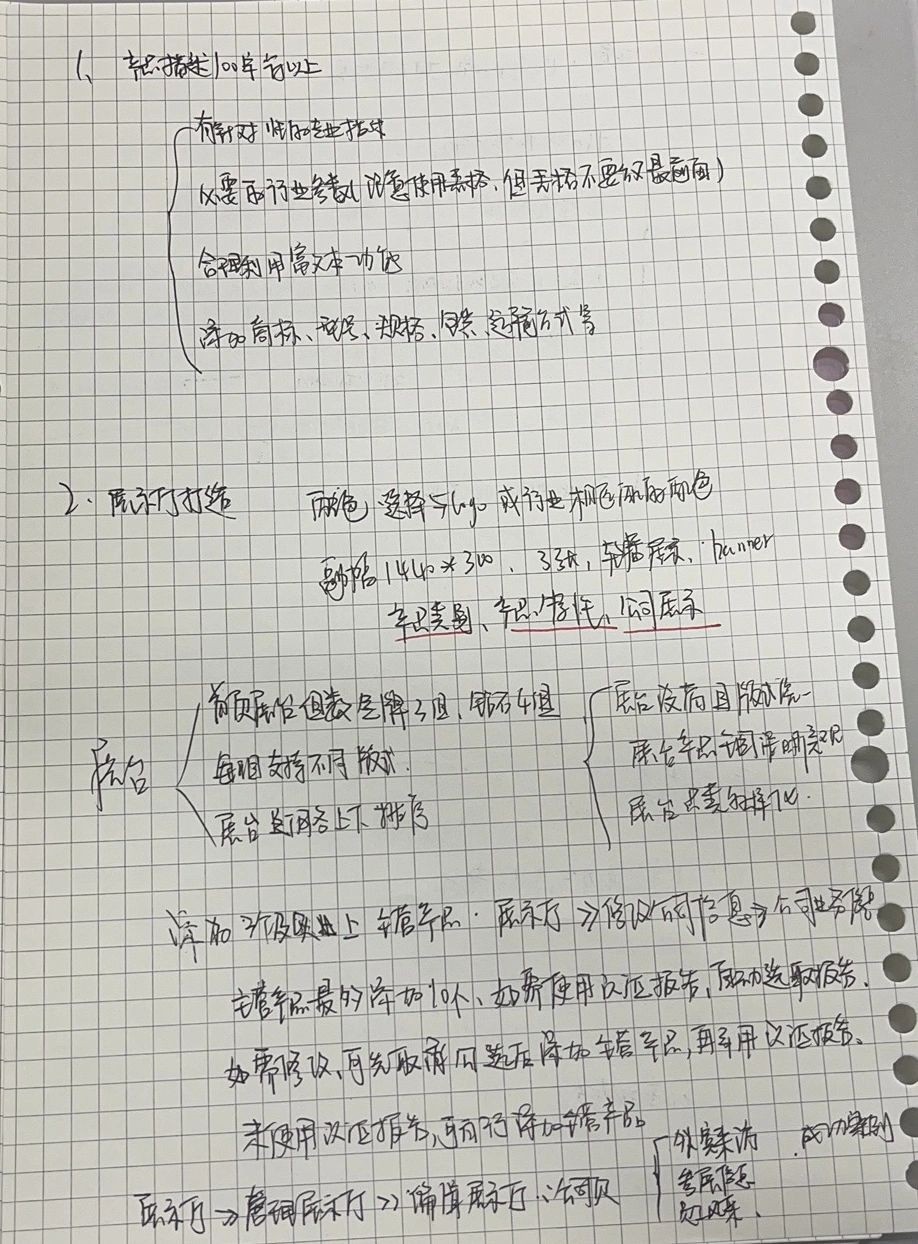 1、产品描述100单字以上
有针对性的专业描述
必要的行业参数(注意使用表格,但表格不要放最前面)
合理利用富文本功能
添加商标、型号、规格、包装、运输方式等
2. 展示厅打造 配色 选择与logo 或行业相匹配的配色
1440*300、3张,轮播展示、banner
产品类图、产品/宣传、公司展示
展台
首页展台组数金牌3组、钻石4组
每组支持不同版式.
展台支持各上下排序
展台没有且版式统一
展台产品主图清晰美观
展台品类多样化.
添加3个及以上主营产品. 展示厅 >> 修改公司信息 > 公司业务
主营产品最多添加10个、如需使用认证报告,自动选取报告.
如需修改,可先取消勾选后添加主营产品,再引用认证报告.
未使用认证报告,可自行添加主营产品
展示厅 >> 管理展示厅 >> 编辑展示厅 公司页
外宾来访 成功案例
参展信息
员工风采.